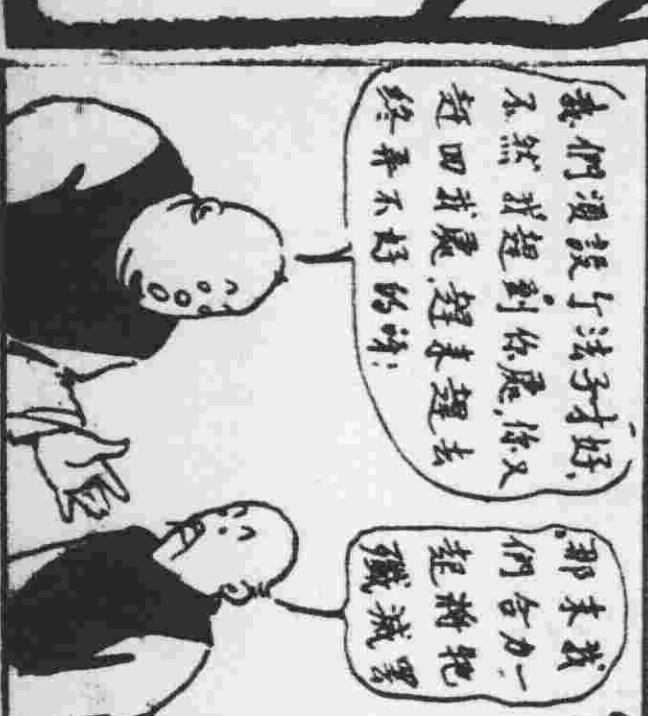 我們須設个法子才好,
不然我趕到你處,你又
赶回我處,趕来趕去
終弄不好的呀!
那末我
們合力一
起將牠
殲滅罢